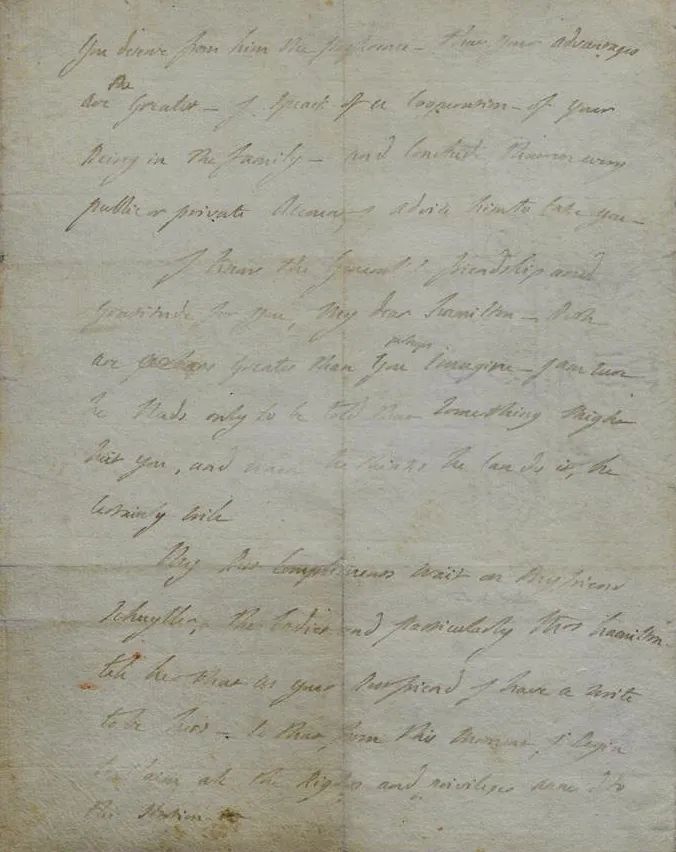 You derive from him the preference – than your advantages
the
are Greater – I speak of a Cooperation – of your
Being in the family – and Conclude that on every
public or private account I advise him to take you –
I know the General's friendship and
Gratitude for you, My dear hamilton – Both
are Greater than perhaps You Imagine – I am sure
he Needs only to be told that Something Might
Suit you, and when he thinks he Can do it, he
Certainly will
My Best Compliments wait on
Schuyller, the Ladies and particularly Mrs hamilton –
tell her that as your Best friend I have a Write
to be hers – So that from this Moment, I Begin
to Claim all the Rights and privileges annex'd to
the Station –